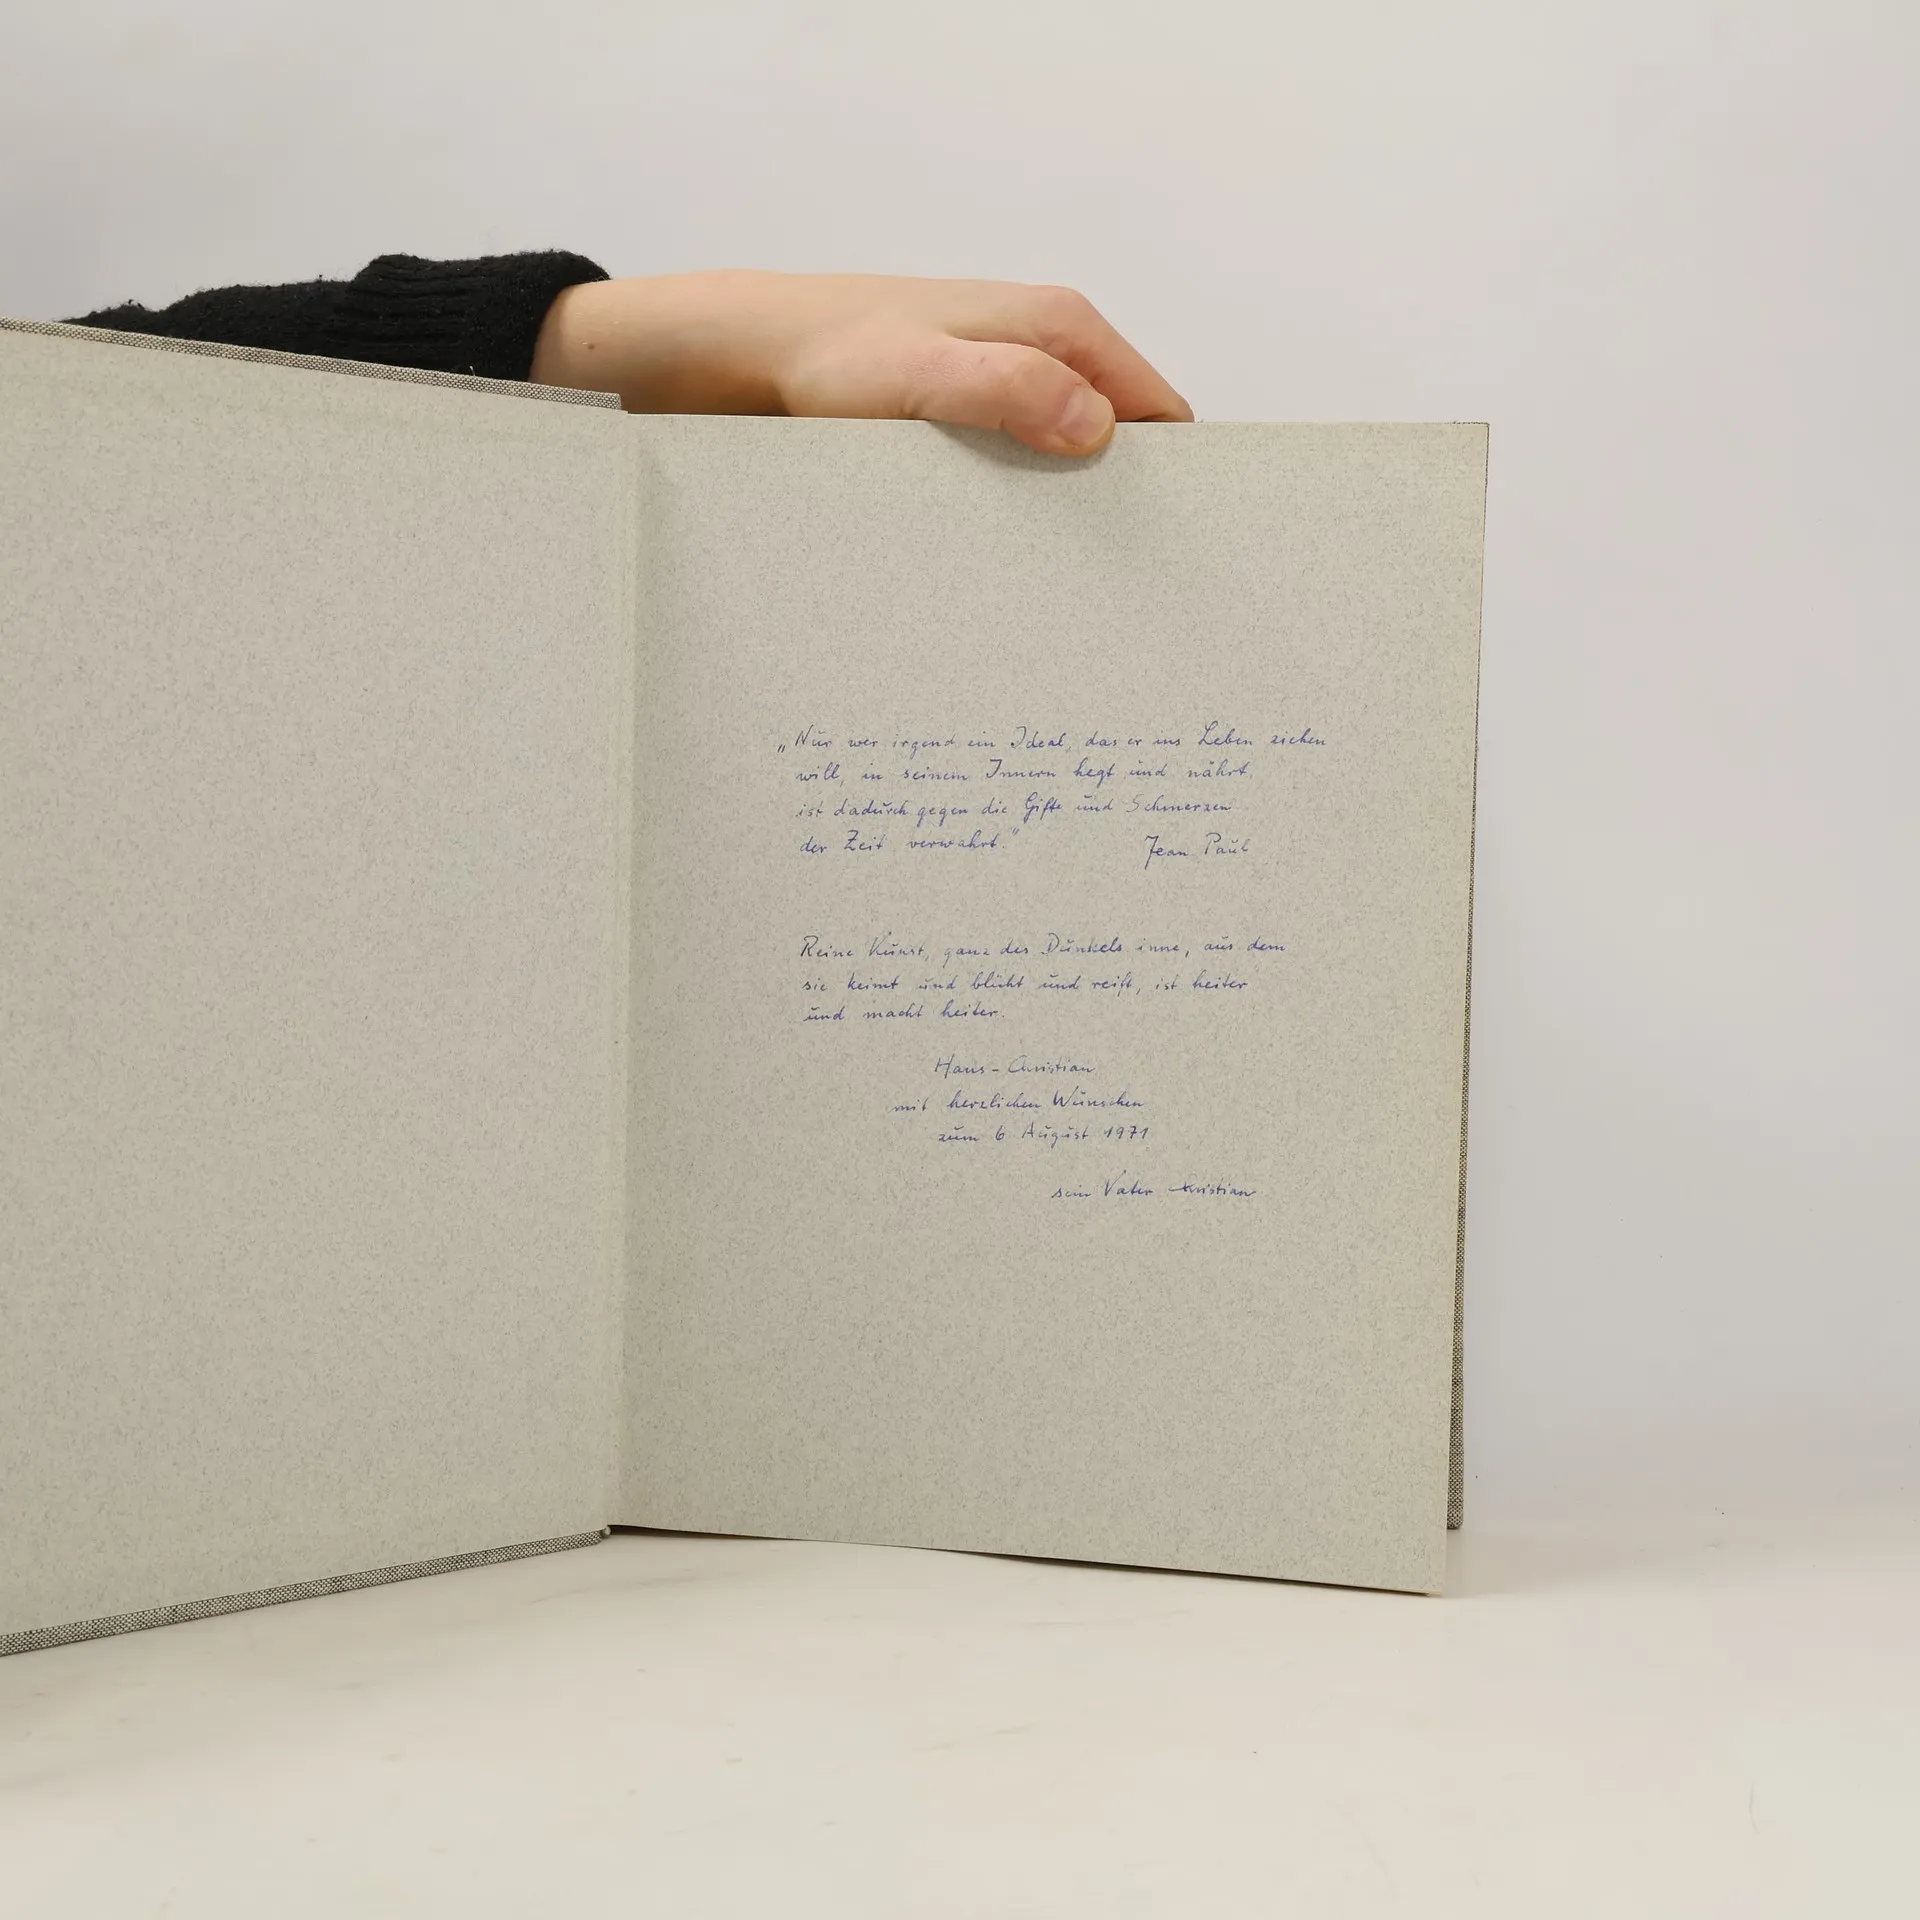 „Nur wer irgend ein Ideal, das er ins Leben ziehen
will, in seinem Innern hegt und nährt,
ist dadurch gegen die Gifte und Schmerzen
der Zeit verwahrt.“ Jean Paul
Reine Kunst, ganz des Dunkels inne, aus dem
sie keimt und blüht und reift, ist heiter
und macht heiter.
Hans-Christian
mit herzlichen Wünschen
zum 6 August 1971
sein Vater Christian